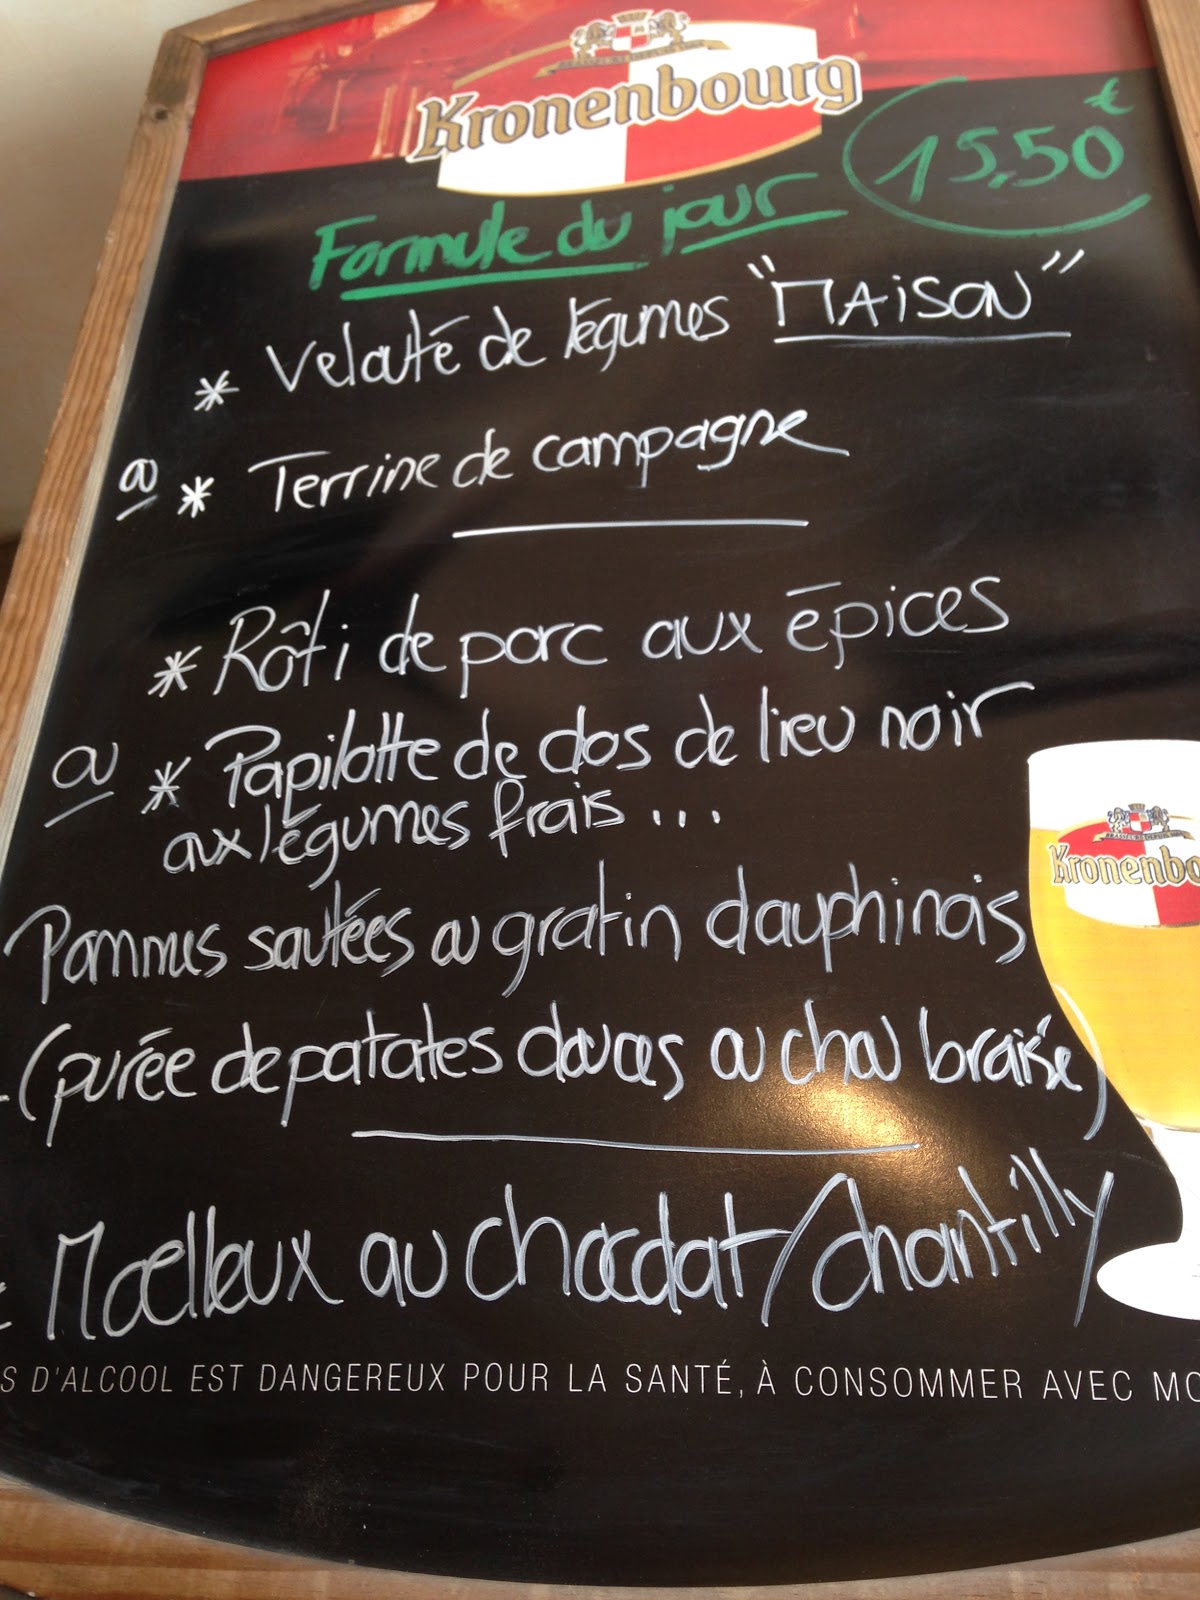 Kronenbourg
15,50 €
Formule du jour
* Velouté de légumes "MAISON"
ou * Terrine de campagne
* Rôti de porc aux épices
ou * Papillotte de dos de lieu noir
aux légumes frais ...
Pommes sautées ou gratin dauphinois
(purée de patates douces ou chou braisé)
Moelleux au chocolat/chantilly
S D'ALCOOL EST DANGEREUX POUR LA SANTÉ, À CONSOMMER AVEC MO
Kronenbo